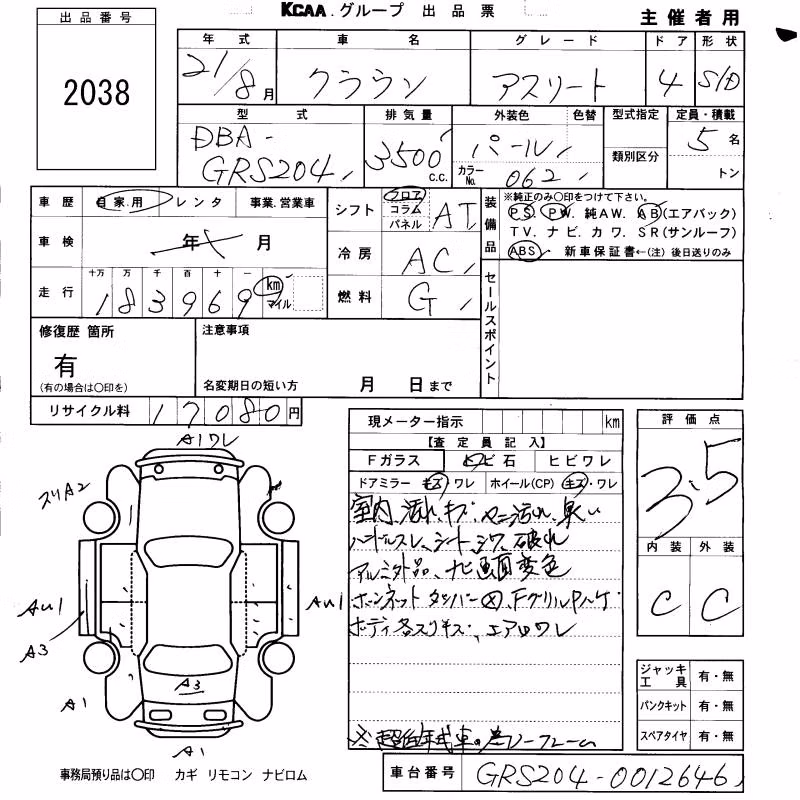 KCAA.グループ 出品票
主催者用
出品番号
2038
年式 車名 グレード ドア 形状
21/8月 クラウン アスリート 4 S/D
型式 排気量 外装色 色替 型式指定 定員・積載
DBA-
GRS204 3500 c.c. パール 5名
カラーNo. 062 類別区分 トン
車歴 自家.用 レンタ 事業.営業車
シフト フロア コラム パネル AT
装備品
※純正のみ〇印をつけて下さい。
PS. PW. 純AW. AB(エアバック)
TV. ナビ. カワ. SR(サンルーフ)
ABS 新車保証書←(注) 後日送りのみ
車検 年 月
冷房 AC
走行 十万 万 千 百 十 一
183969 km マイル
燃料 G
セールスポイント
修復歴 箇所
有
(有の場合は〇印を)
注意事項
名変期日の短い方 月 日まで
リサイクル料 17080円
現メーター指示 km
【査定員記入】
Fガラス トビ石 ヒビワレ
ドアミラー キズ・ワレ ホイール(CP) キズ・ワレ
室内、汚れ、キズ、ヤニ汚れ、臭い
ハンドルスレ、シートシワ、破れ
アルミ外品、ナビ画面変色
ボンネットダンパー Fグリル
ボディ各スリキズ、エアロワレ
評価点
3.5
内装 外装
C C
A1ワレ
スリA2
AU1
AU1
A3
A1
A3
A1
ジャッキ工具 有・無
パンクキット 有・無
スペアタイヤ 有・無
事務局預り品は〇印 カギ リモコン ナビロム
車台番号 GRS204-0012646